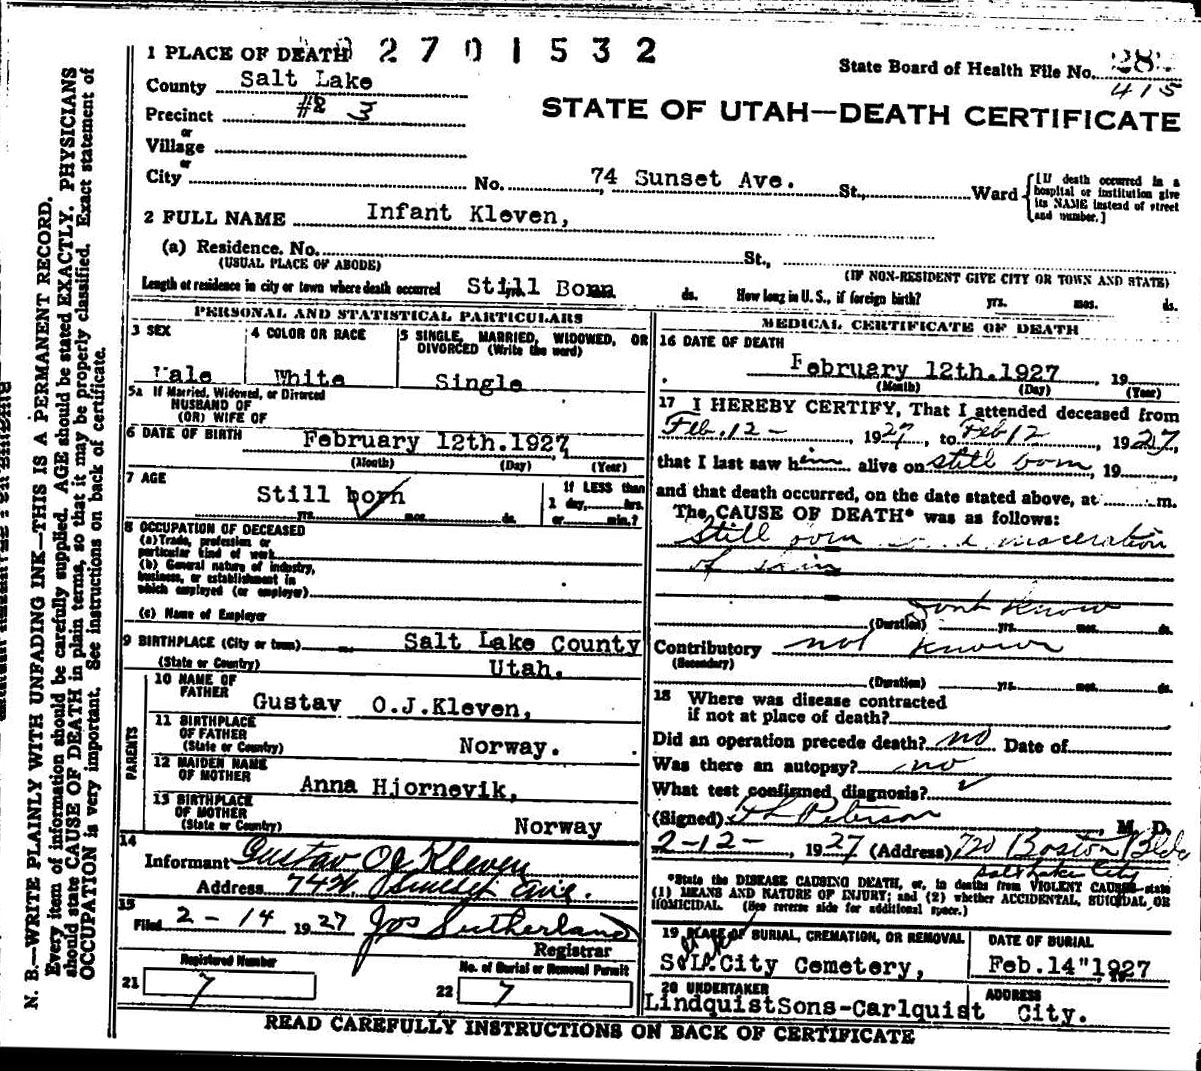 2701532
1 PLACE OF DEATH
State Board of Health File No.
415
County Salt Lake
STATE OF UTAH—DEATH CERTIFICATE
Precinct #2 3
or
Village
or
City No. 74 Sunset Ave. St., Ward
[If death occurred in a
hospital or institution give
its NAME instead of street
and number.]
2 FULL NAME Infant Kleven,
(a) Residence. No. St.,
(USUAL PLACE OF ABODE) (IF NON-RESIDENT GIVE CITY OR TOWN AND STATE)
Length of residence in city or town where death occurred Still Born yrs. mos. ds. How long in U. S., if foreign birth? yrs. mos. ds.
PERSONAL AND STATISTICAL PARTICULARS
3 SEX
Male
4 COLOR OR RACE
White
5 SINGLE, MARRIED, WIDOWED, OR
DIVORCED (Write the word)
Single
5a If Married, Widowed, or Divorced
HUSBAND OF
(OR) WIFE OF
6 DATE OF BIRTH February 12th.1927,
(Month) (Day) (Year)
7 AGE
Still born
yrs. mos. ds.
If LESS than
1 day, hrs.
or min.?
8 OCCUPATION OF DECEASED
(a) Trade, profession or
particular kind of work
(b) General nature of industry,
business, or establishment in
which employed (or employer)
(c) Name of Employer
9 BIRTHPLACE (City or town) Salt Lake County
(State or Country) Utah.
PARENTS
10 NAME OF
FATHER
Gustav O.J.Kleven,
11 BIRTHPLACE
OF FATHER
(State or Country) Norway.
12 MAIDEN NAME
OF MOTHER
Anna Hjornevik,
13 BIRTHPLACE
OF MOTHER
(State or Country) Norway
14
Informant Gustav O J Kleven
Address 74 Sunset Ave.
15
Filed 2-14 1927 Jos Sutherland
Registrar
Registered Number
21 7
No. of Burial or Removal Permit
22 7
MEDICAL CERTIFICATE OF DEATH
16 DATE OF DEATH
February 12th.1927, 19
(Month) (Day) (Year)
17 I HEREBY CERTIFY, That I attended deceased from
Feb. 12 - , 1927, to Feb 12 , 1927,
that I last saw him alive on still born, 19 ,
and that death occurred, on the date stated above, at m.
The CAUSE OF DEATH* was as follows:
Still born maceration
of skin
dont know
(Duration) yrs. mos. ds.
Contributory not known
(Secondary)
(Duration) yrs. mos. ds.
18 Where was disease contracted
if not at place of death?
Did an operation precede death? no Date of
Was there an autopsy? no
What test confirmed diagnosis?
(Signed) Peterson M. D.
2-12-, 1927 (Address) 720 Boston Bldg
Salt Lake City
*State the DISEASE CAUSING DEATH, or, in deaths from VIOLENT CAUSES—state
(1) MEANS AND NATURE OF INJURY; and (2) whether ACCIDENTAL, SUICIDAL, OR
HOMICIDAL. (See reverse side for additional space.)
19 PLACE OF BURIAL, CREMATION, OR REMOVAL
City Cemetery,
DATE OF BURIAL
Feb.14"1927
20 UNDERTAKER
LindquistSons-Carlquist
ADDRESS
City.
READ CAREFULLY INSTRUCTIONS ON BACK OF CERTIFICATE
N. B.—WRITE PLAINLY WITH UNFADING INK—THIS IS A PERMANENT RECORD.
Every item of information should be carefully supplied. AGE should be stated EXACTLY. PHYSICIANS
should state CAUSE OF DEATH in plain terms, so that it may be properly classified. Exact statement of
OCCUPATION is very important. See instructions on back of certificate.